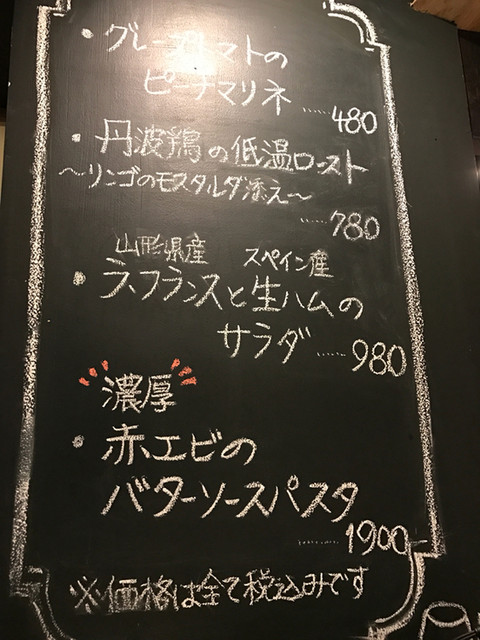 ・グレープトマトの
ピーチマリネ ……480
・丹波鶏の低温ロースト
〜リンゴのモスタルダ添え〜
……780
山形県産 スペイン産
・ラ・フランスと生ハムの
サラダ ……980
濃厚
・赤エビの
バターソースパスタ
……1900
※価格は全て税込みです